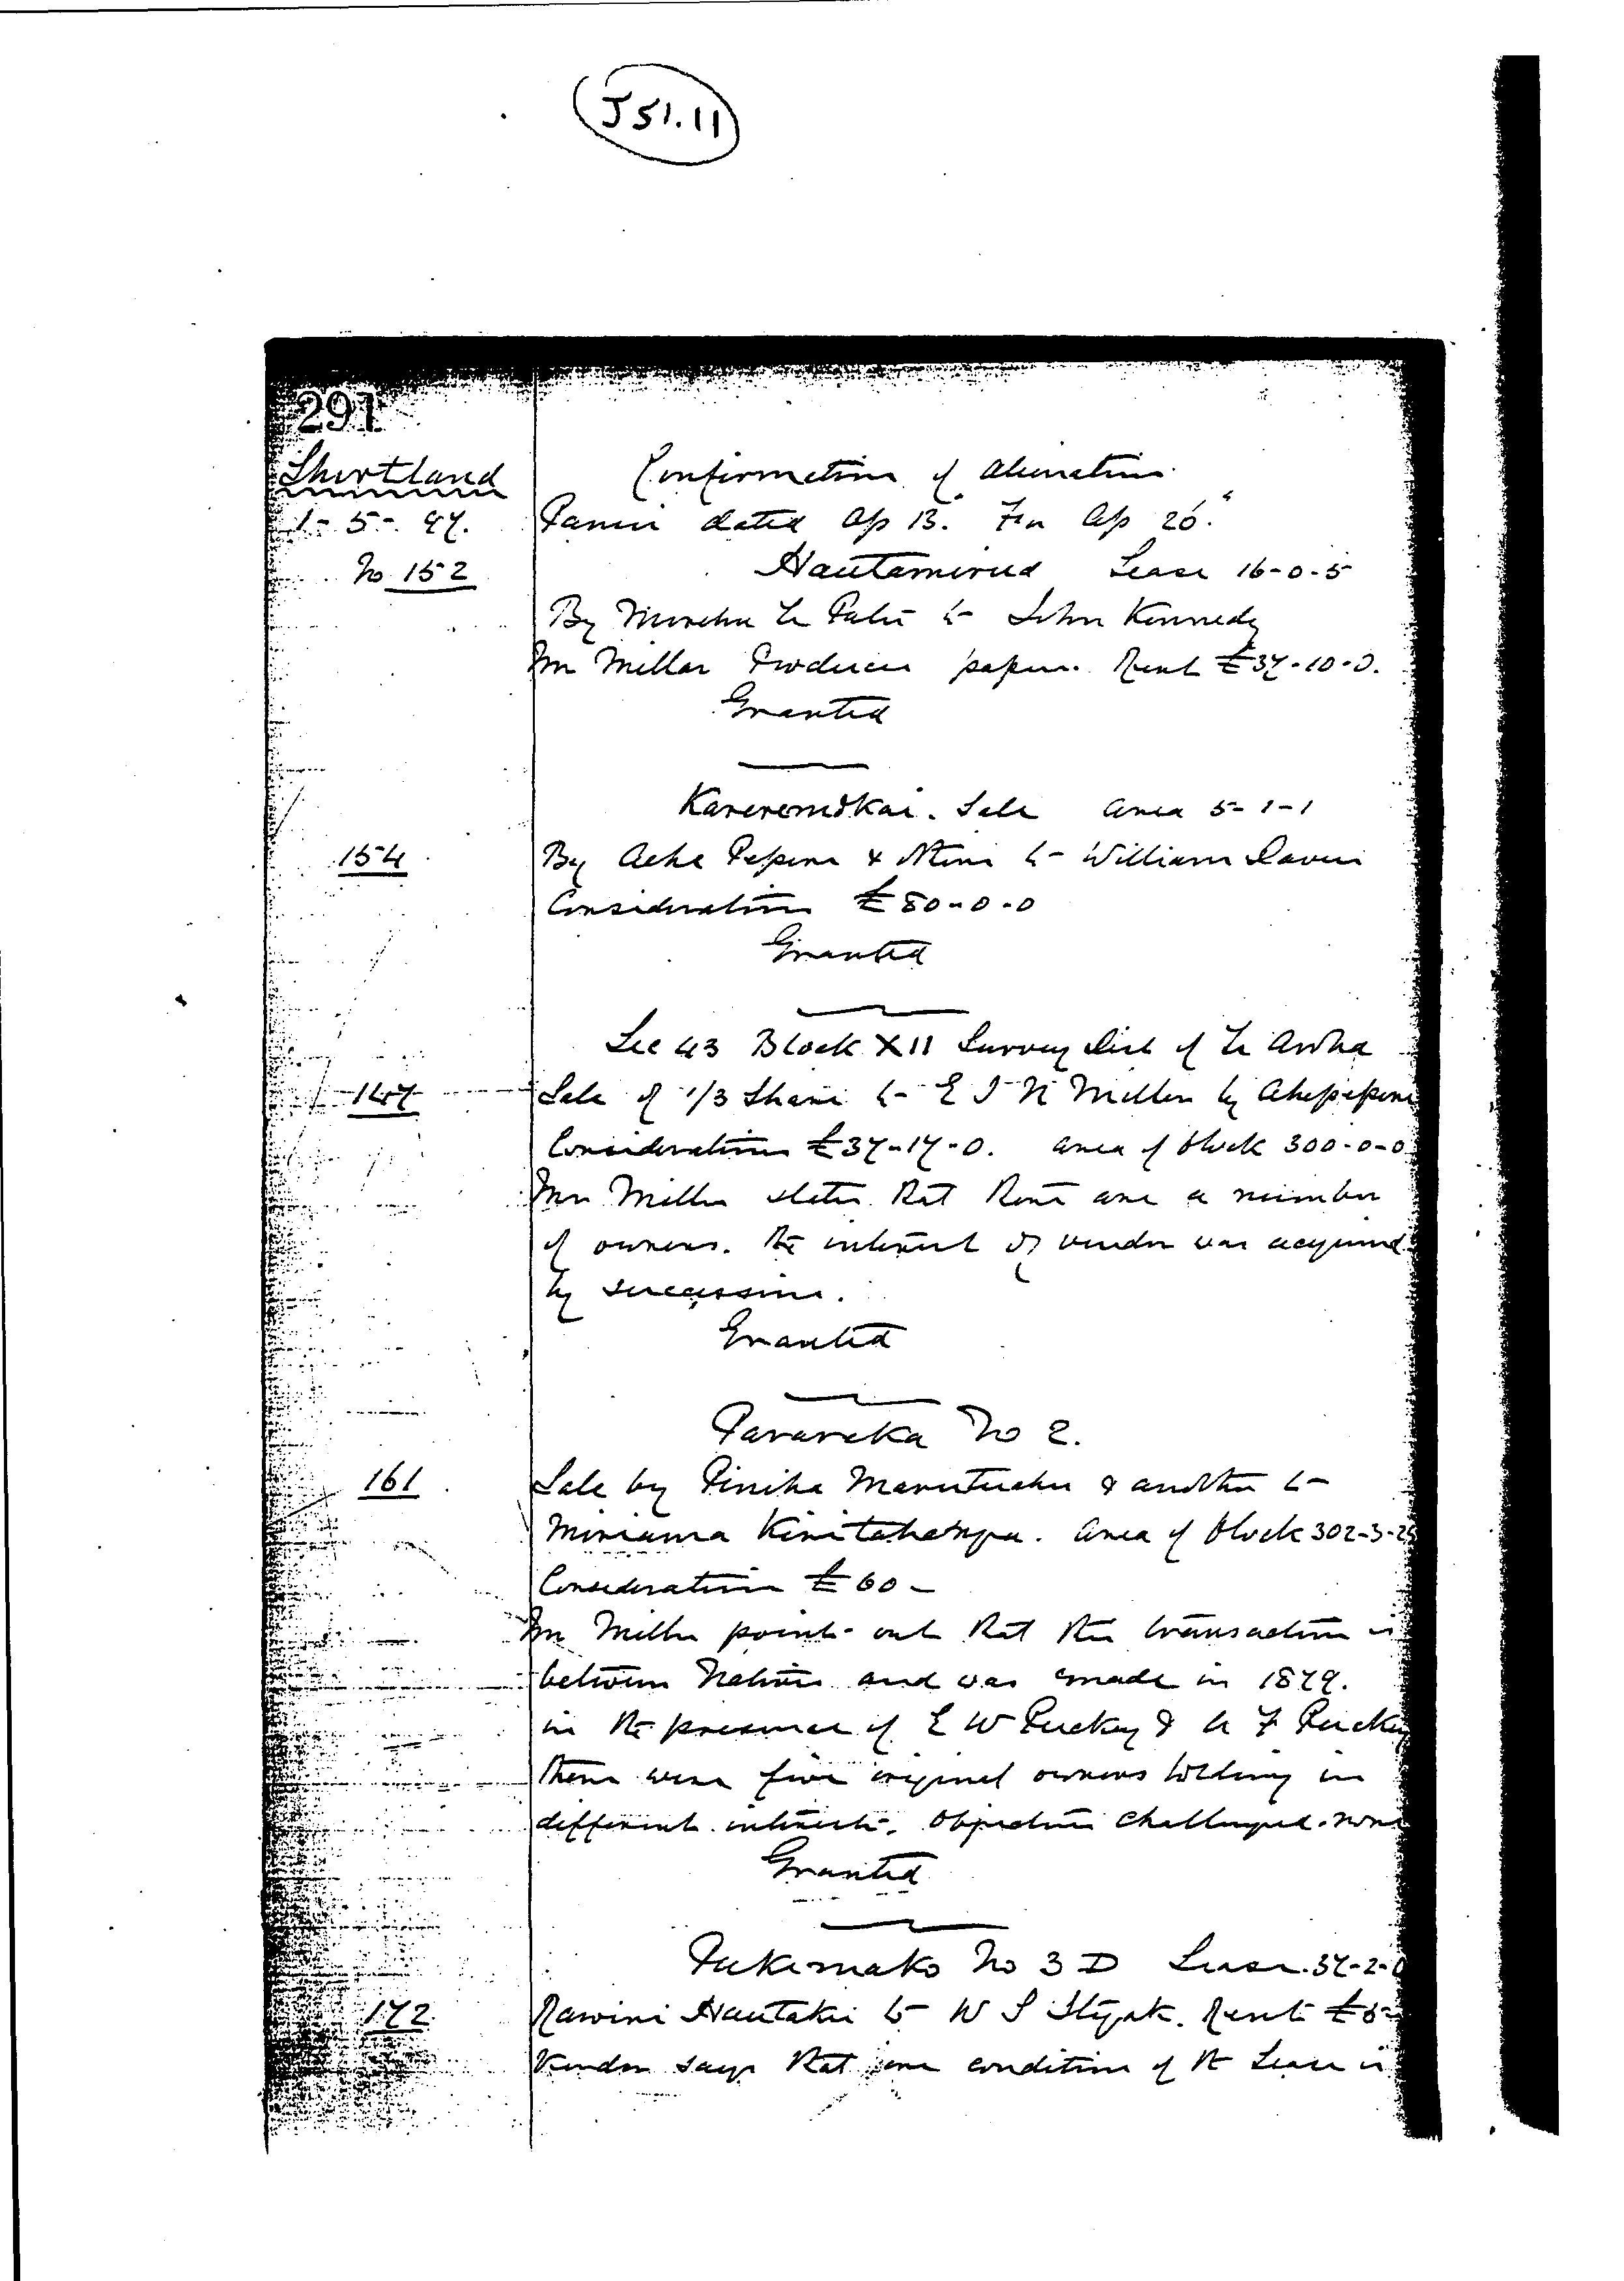 J51.11
291
Shortland
1-5-97.
Confirmation of Alienation
Panui dated Ap 13. For Ap 26.
No 152
Hautamirua Lease 16-0-5
By to John Kennedy
Mr Millar Produces papers. Rent £37-10-0.
Granted
Sale area 5-1-1
154
By Aeha Pepene & to William Davies
Consideration £80-0-0
Granted
Sec 43 Block XII Survey Dist of Te Aroha
147
Sale of 1/3 Share to E J N Miller by Ahapepene
Consideration £37-17-0. area of block 300-0-0
Mr Miller states that there are a number
of owners. The interest of vendor was acquired
by succession.
Granted
Parareka No 2.
161
Sale by Piniha Marutuahu & another to
Miriama Kiritahanga. Area of block 302-3-25
Consideration £60-
Mr Miller points out that the transaction is
between Natives and was made in 1879.
in the presence of E W Puckey & A F Puckey
there were five original owners holding in
different interests. Objections challenged. none
Granted
Pukemako No 3 D Lease. 37-2-0
172
Rawiri Hautakii to W S Stysak. Rent £
Vendor says that one condition of the Lease is